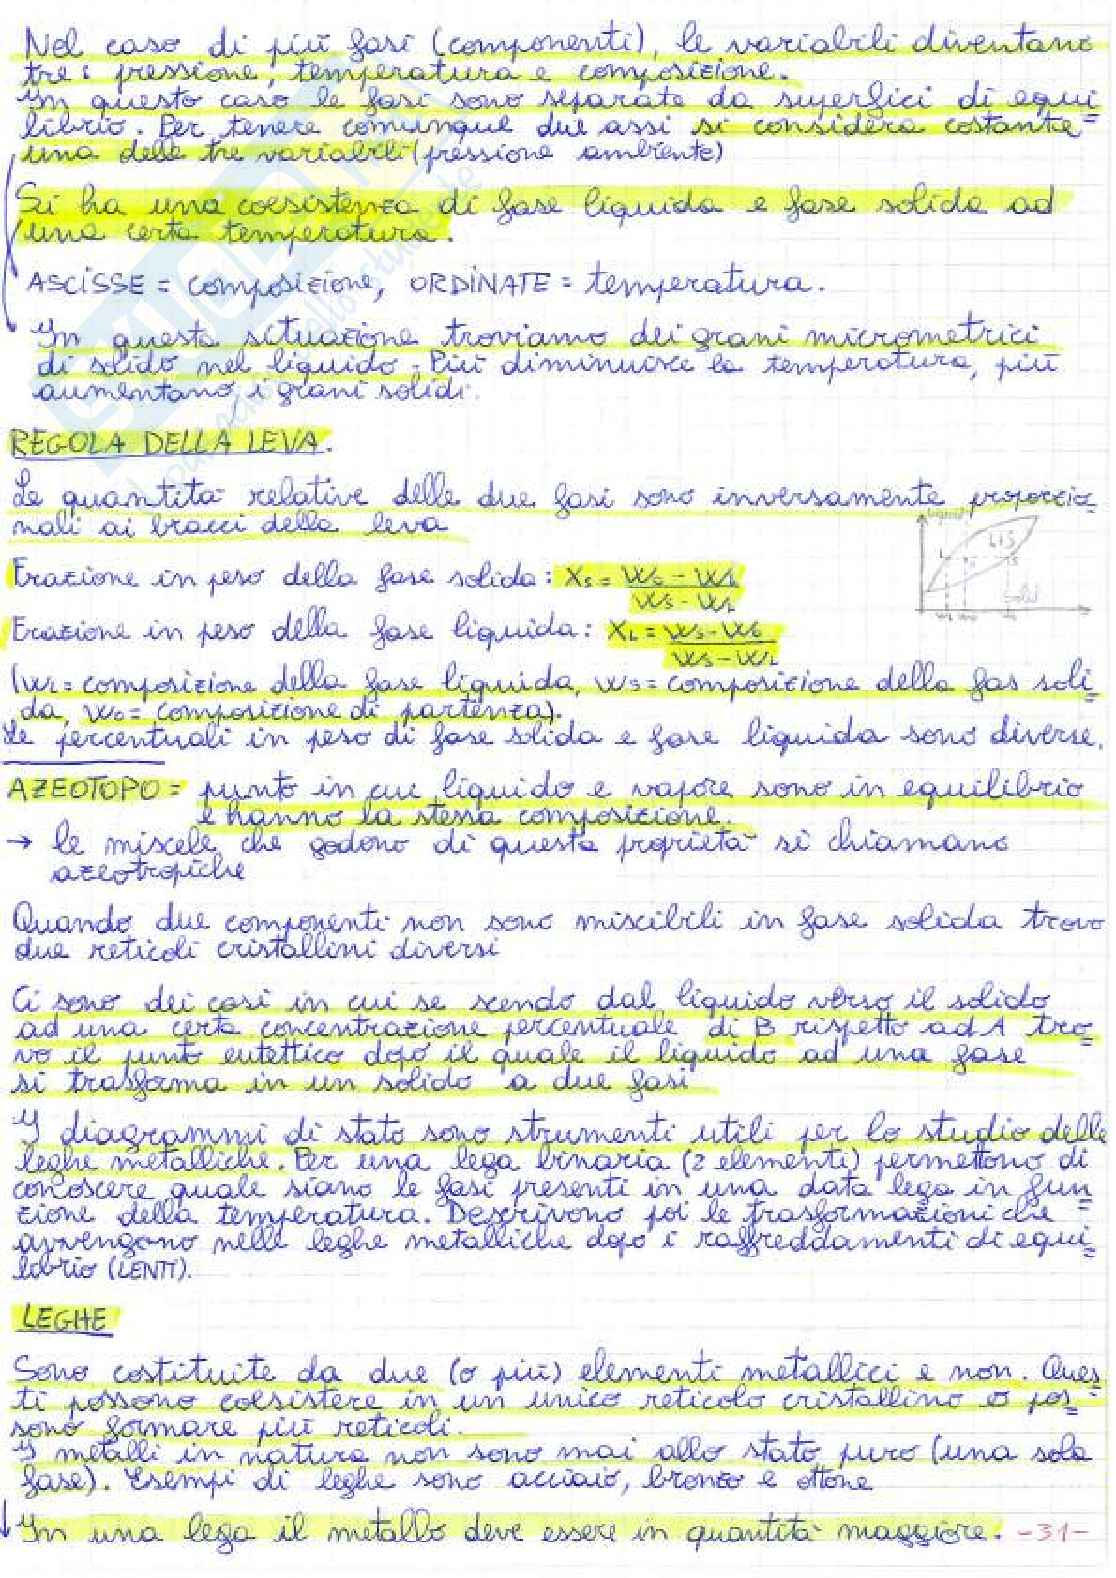 Nel caso di più fasi (componenti), le variabili diventano
tre: pressione, temperatura e composizione.
In questo caso le fasi sono separate da superfici di equi
librio. Per tenere comunque due assi si considera costante
una delle tre variabili (pressione ambiente)
Si ha una coesistenza di fase liquida e fase solida ad
una certa temperatura.
ASCISSE = composizione, ORDINATE = temperatura.
In questa situazione troviamo dei grani micrometrici
di solido nel liquido. Più diminuisce la temperatura, più
aumentano i grani solidi.
REGOLA DELLA LEVA.
Le quantità relative delle due fasi sono inversamente proporzio
nali ai bracci della leva
Frazione in peso della fase solida: Xs = Wo - WL
Ws - WL
Frazione in peso della fase liquida: XL = Ws - Wo
Ws - WL
(WL = composizione della fase liquida, Ws = composizione della fas soli
da, Wo = composizione di partenza).
Le percentuali in peso di fase solida e fase liquida sono diverse.
L+S
Solid
AZEOTOPO = punto in cui liquido e vapore sono in equilibrio
e hanno la stessa composizione.
→ le miscele che godono di questa proprietà si chiamano
azeotropiche
Quando due componenti non sono miscibili in fase solida trovo
due reticoli cristallini diversi
Ci sono dei casi in cui se scendo dal liquido verso il solido
ad una certa concentrazione percentuale di B rispetto ad A tro
vo il punto eutettico dopo il quale il liquido ad una fase
si trasforma in un solido a due fasi
I diagrammi di stato sono strumenti utili per lo studio delle
leghe metalliche. Per una lega binaria (2 elementi) permettono di
conoscere quale siano le fasi presenti in una data lega in fun
zione della temperatura. Descrivono poi le trasformazioni che
avvengono nelle leghe metalliche dopo i raffreddamenti di equi
librio (LENTI).
LEGHE
Sono costituite da due (o più) elementi metallici e non. Ques
ti possono coesistere in un unico reticolo cristallino o pos
sono formare più reticoli.
I metalli in natura non sono mai allo stato puro (una sola
fase). Esempi di leghe sono acciaio, bronzo e ottone
↓ In una lega il metallo deve essere in quantità maggiore. -31-